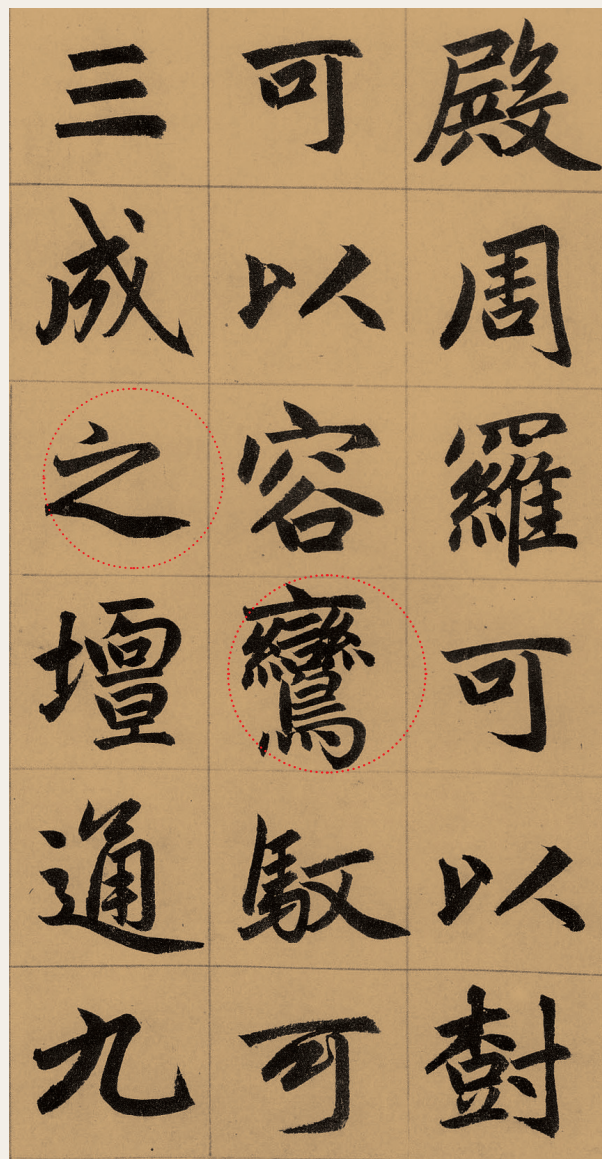 殿周羅可以樹
可以容鸞馭可
三成之壇通九